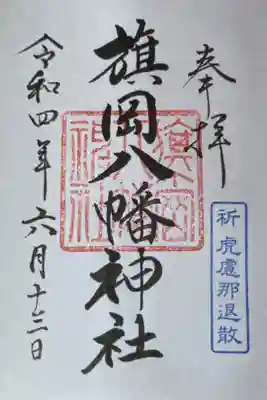 奉拝
旗岡八幡神社
令和四年六月十三日
祈 虎慮那退散